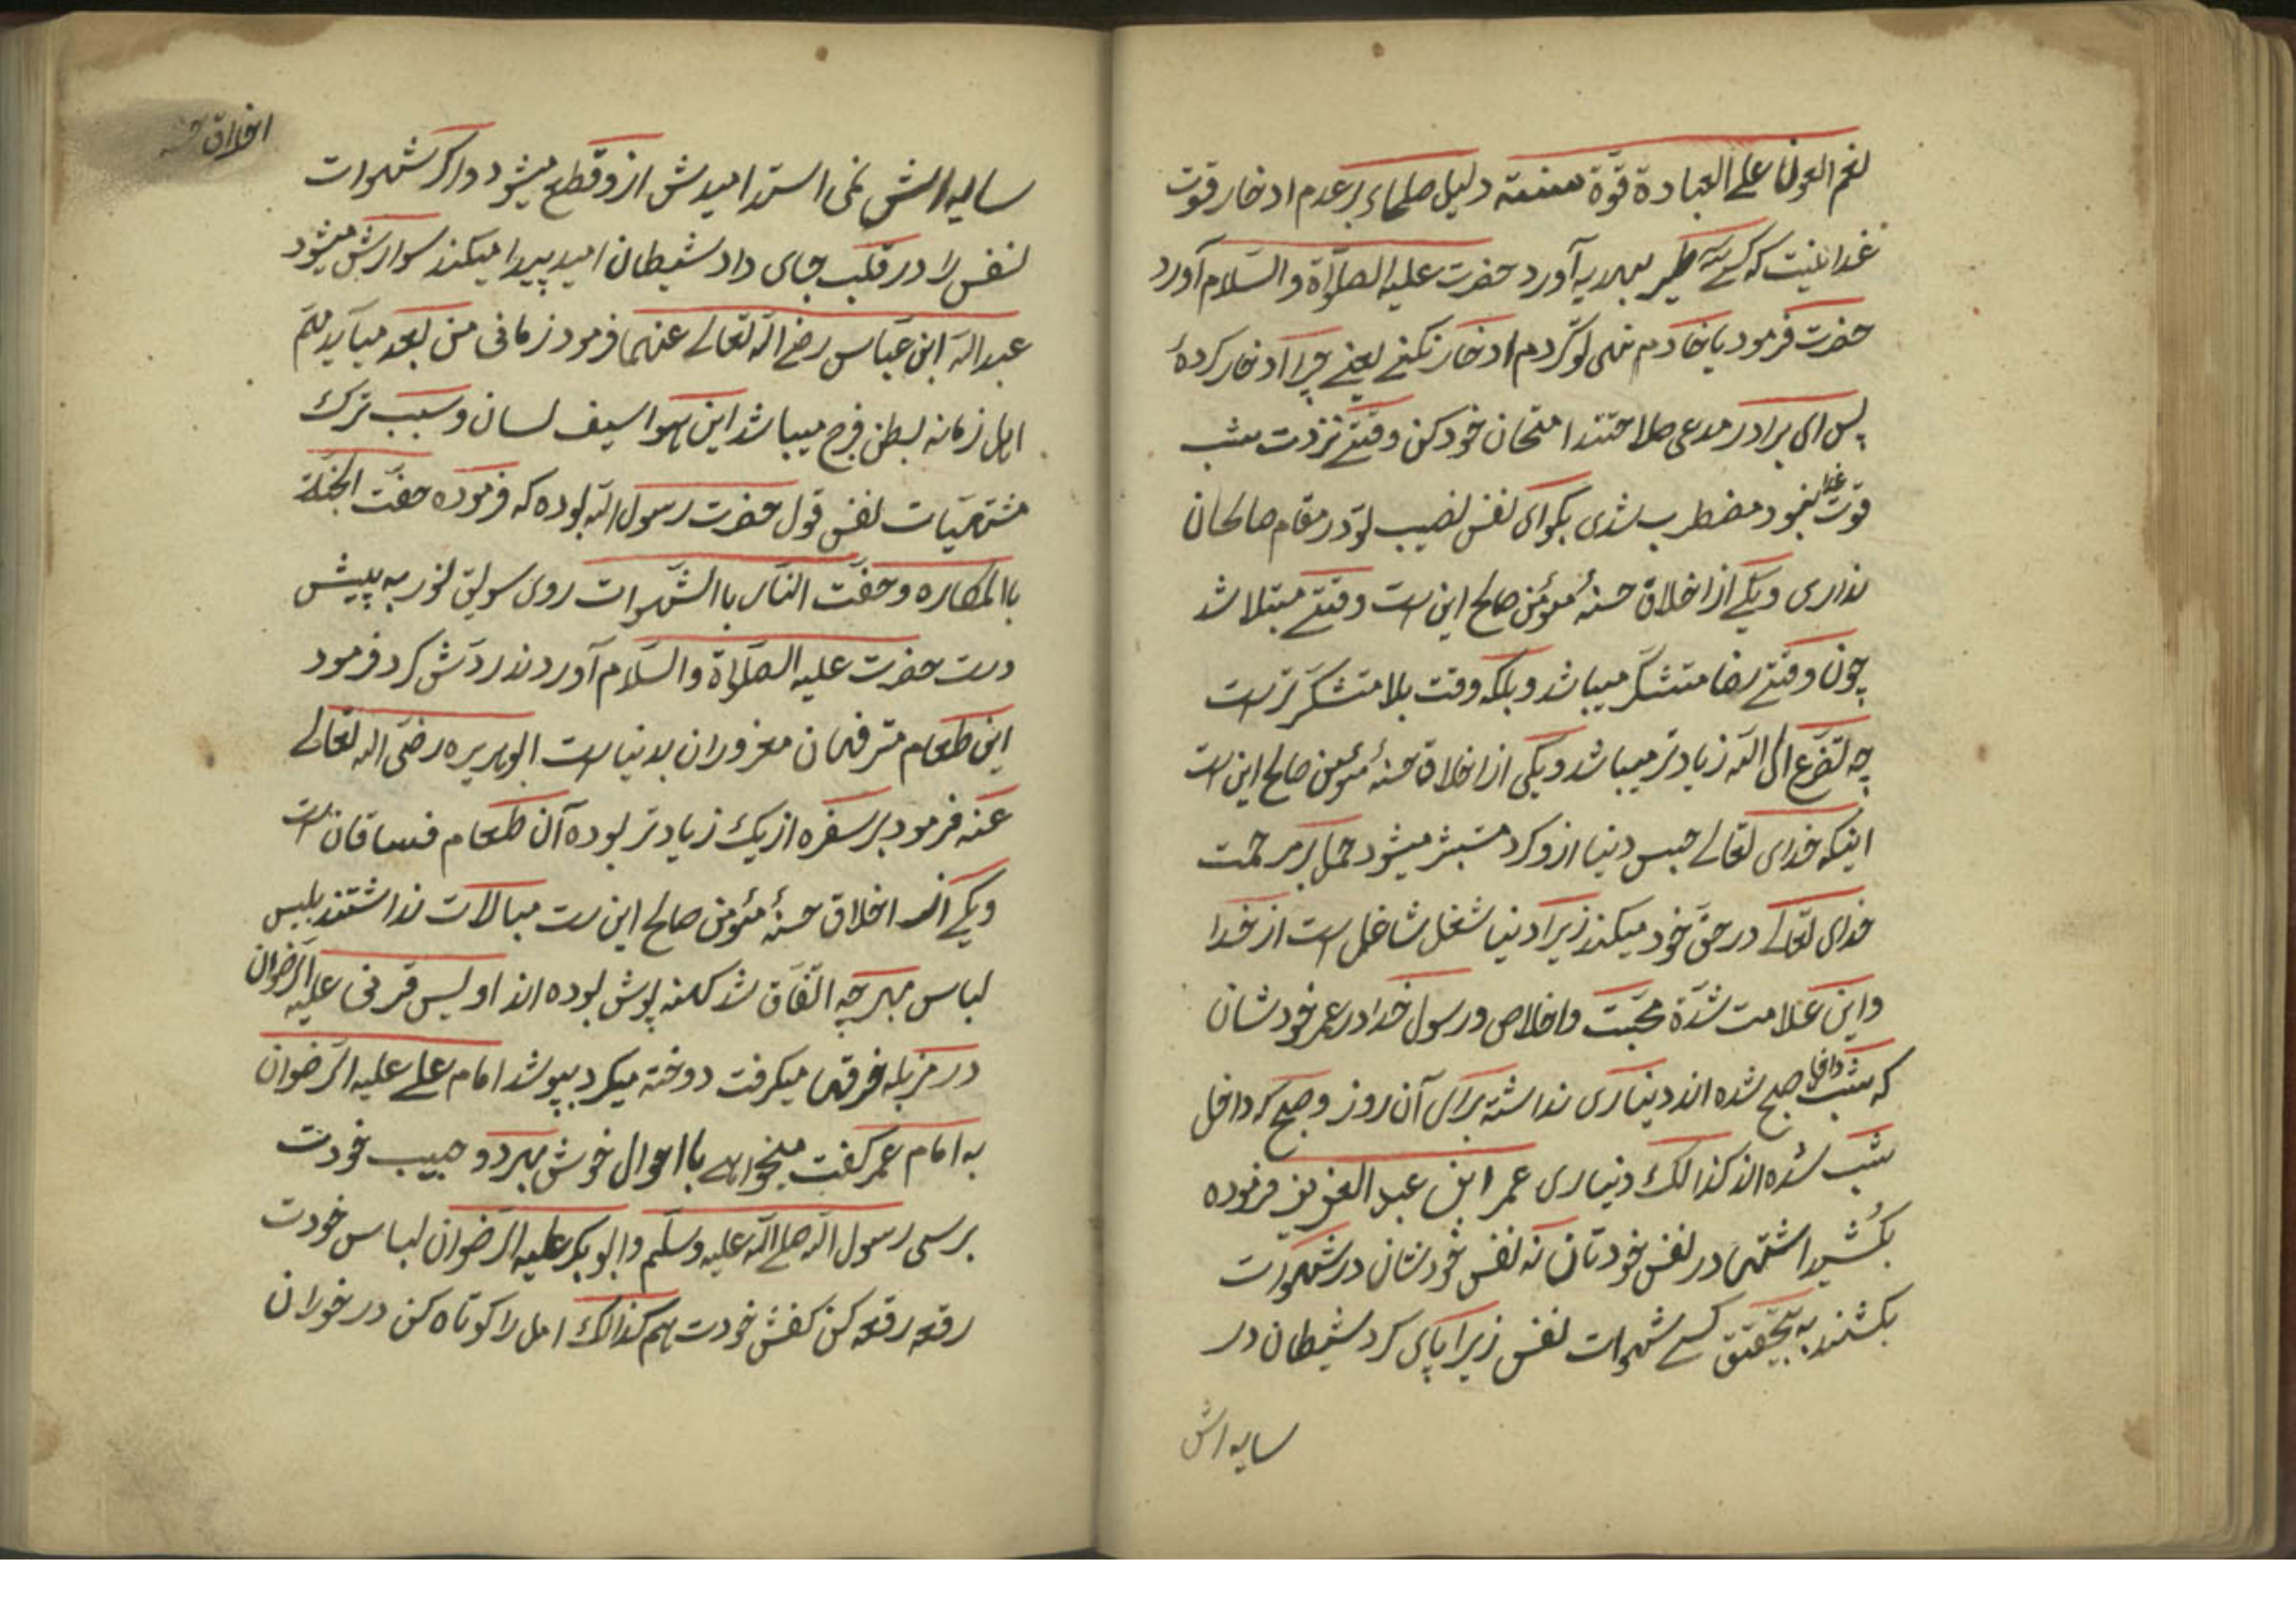 نعم العون علی العبادة قوّة سنة دلیل صلحاء بر عدم ادخار قوت
غدا نیت که کسی سه طیر بهدیه آورد حضرت علیه الصلوٰة والسّلام آورد
حضرت فرمود یا خادم نهی تو کردم ادخار نکنی یعنی چرا ادخار کردهٔ
پس ای برادر مدعی صلاحتند امتحان خود کن وقتی نزدت شب
قوت غدا نبود مضطرب شدی بگو ای نفس نصیب تو در مقام صالحان
نداری و یکی از اخلاق حسنهٔ مؤمن صالح این است وقتی مبتلا شد
چون وقتی رضا متشکّر میباشد و بلکه وقت بلا متشکّرتر است
چه تضرّع الی اللّه زیادتر میباشد و یکی از اخلاق حسنهٔ مؤمن صالح این است
اینکه خدای تعالی حبس دنیا ازو کرد مستبشر میشود حمل بر مرحمت
خدای تعالی در حقّ خود میکند زیرا دنیا شغل شاغل است از خدا
و این علامت شدّة محبّت و اخلاص و رسول خدا در عمر خودشان
که شب داخل صبح شده اند دیناری نداشته برای آن روز و صبح که داخل
شب شده اند کذالک دیناری عمر ابن عبد العزیز فرموده
بکُشید اشتهی در نفس خودتان نه نفس خودشان در شهوات
بکشند به تحقیق کسی شهوات نفس زیر اپای کرد شیطان در
سایه اش
اخلاق حسنه
سایه اش نمی استد امیدش ازو قطع میشود و اگر شهوات
نفس را در قلب جای داد شیطان امید پیدا میکند سوارش میشود
عبد اللّه ابن عبّاس رضی اللّه تعالی عنهما فرمود زمانی من بعد میآید همّ
اهل زمانه بطن فرج میباشد این هوا سیف لسان و سبب ترک
مشتهیّات نفس قول حضرت رسول اللّه بوده که فرموده حفّت الجنّة
باالمکاره و حفّت النّار باالشّهوات روی سویق لوز به پیش
دست حضرت علیه الصّلوٰة والسّلام آوردند ردّش کرد فرمود
این طعام مترفهان مغروران بدنیا است ابو هریره رضی اللّه تعالی
عنه فرمود بر سفره از یک زیادتر بوده آن طعام فساقان است
و یکی از اخلاق حسنهٔ مؤمن صالح این است مبالات نداشتند بلبس
لباس بهر چه اتّفاق شد کهنه پوش بوده اند اویس قرنی علیه الرّضوان
در مزبله خرقهٔ میکرفت دوخته میکرد بپوشد امام علی علیه الرّضوان
به امام عمر کفت میخواهی با احوال خوش بهر دو حبیب خودت
برسی رسول اللّه صلی اللّه علیه وسلّم و ابو بکر علیه الرّضوان لباس خودت
رقعه رقعه کن کفش خودت هم کذالک امل را کوتاه کن در خوران